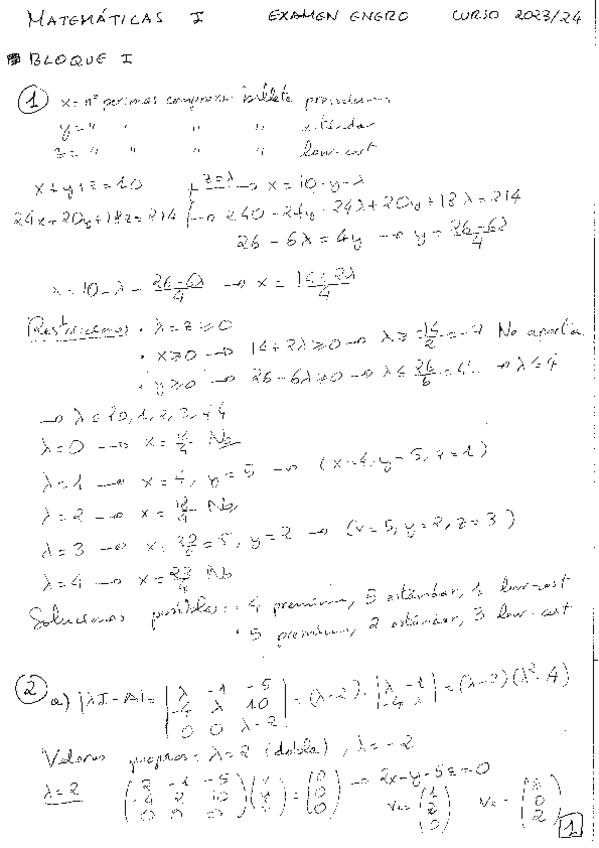 MATEMÁTICAS I EXAMEN ENERO CURSO 2023/24
BLOQUE I
① x = nº personas compraron billete premium
y = " " " " estándar
z = " " " " low-cost
x+y+z=10 z=λ → x=10-y-λ
24x+20y+18z=214 → 240-24y-24λ+20y+18λ=214
26-6λ=4y → y=26-6λ/4
x=10-λ-26-6λ/4 → x=14+2λ/4
Restricciones • λ=z≥0
• x≥0 → 14+2λ≥0 → λ≥-14/2=-7 No aporta
• y≥0 → 26-6λ≥0 → λ≤26/6=4... → λ≤4
→ λ={0,1,2,3,4}
λ=0 → x=14/4 No
λ=1 → x=4, y=5 → (x=4, y=5, z=1)
λ=2 → x=18/4 No
λ=3 → x=20/4=5, y=2 → (x=5, y=2, z=3)
λ=4 → x=22/4 No
Soluciones posibles: • 4 premium, 5 estándar, 1 low-cost
• 5 premium, 2 estándar, 3 low-cost
② a) |λI-A|= |λ -1 -5; -4 λ 10; 0 0 λ-2| = (λ-2)·|λ -1; -4 λ| = (λ-2)(λ²-4)
Valores propios: λ=2 (doble), λ=-2
λ=2 (2 -1 -5; -4 2 10; 0 0 0)(x; y; z) = (0; 0; 0) → 2x-y-5z=0
(1; 2; 0) (5; 0; 2)
1